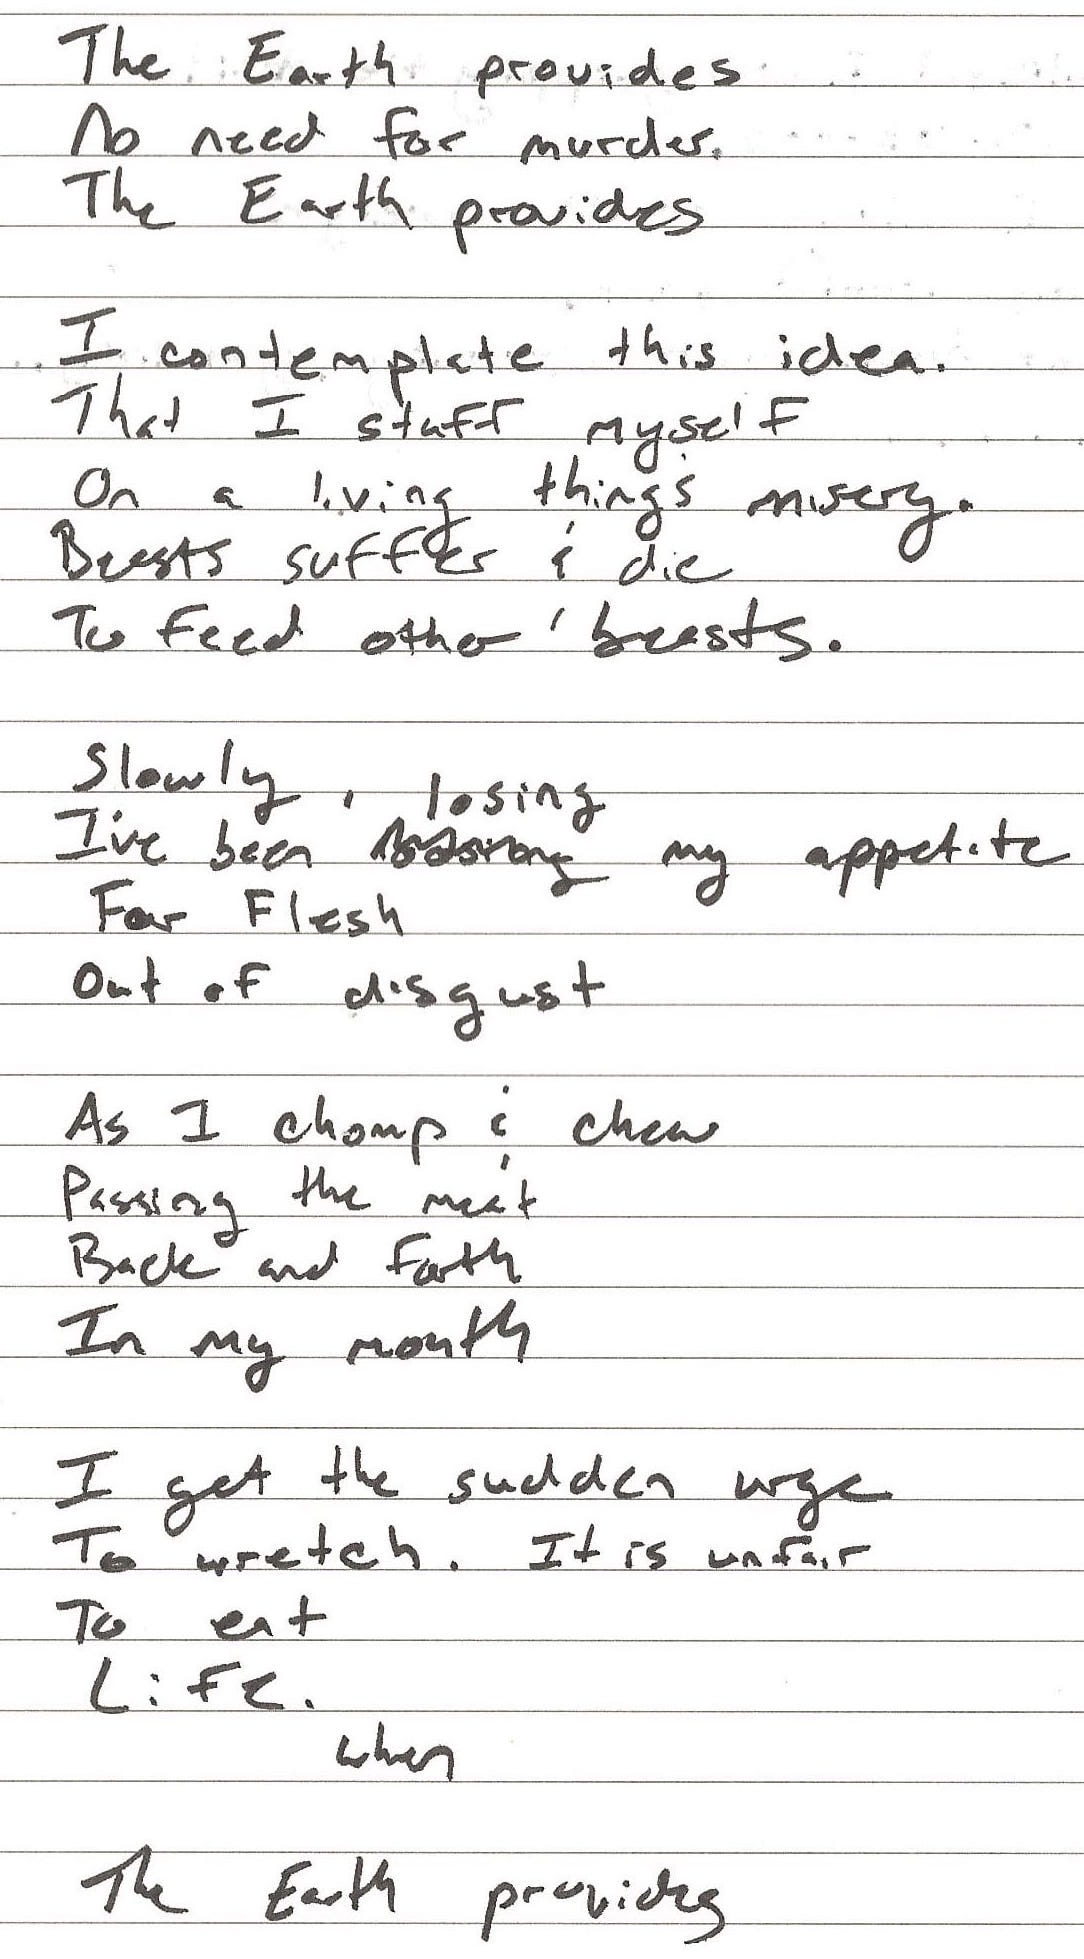 The Earth provides
No need for murder.
The Earth provides
I contemplate this idea.
That I stuff myself
On a living things misery.
Beasts suffer & die
To feed other beasts.
Slowly, losing
I've been my appetite
For Flesh
Out of disgust
As I chomp & chew
Passing the meat
Back and forth
In my mouth
I get the sudden urge
To wretch. It is unfair
To eat
Life.
when
The Earth provides